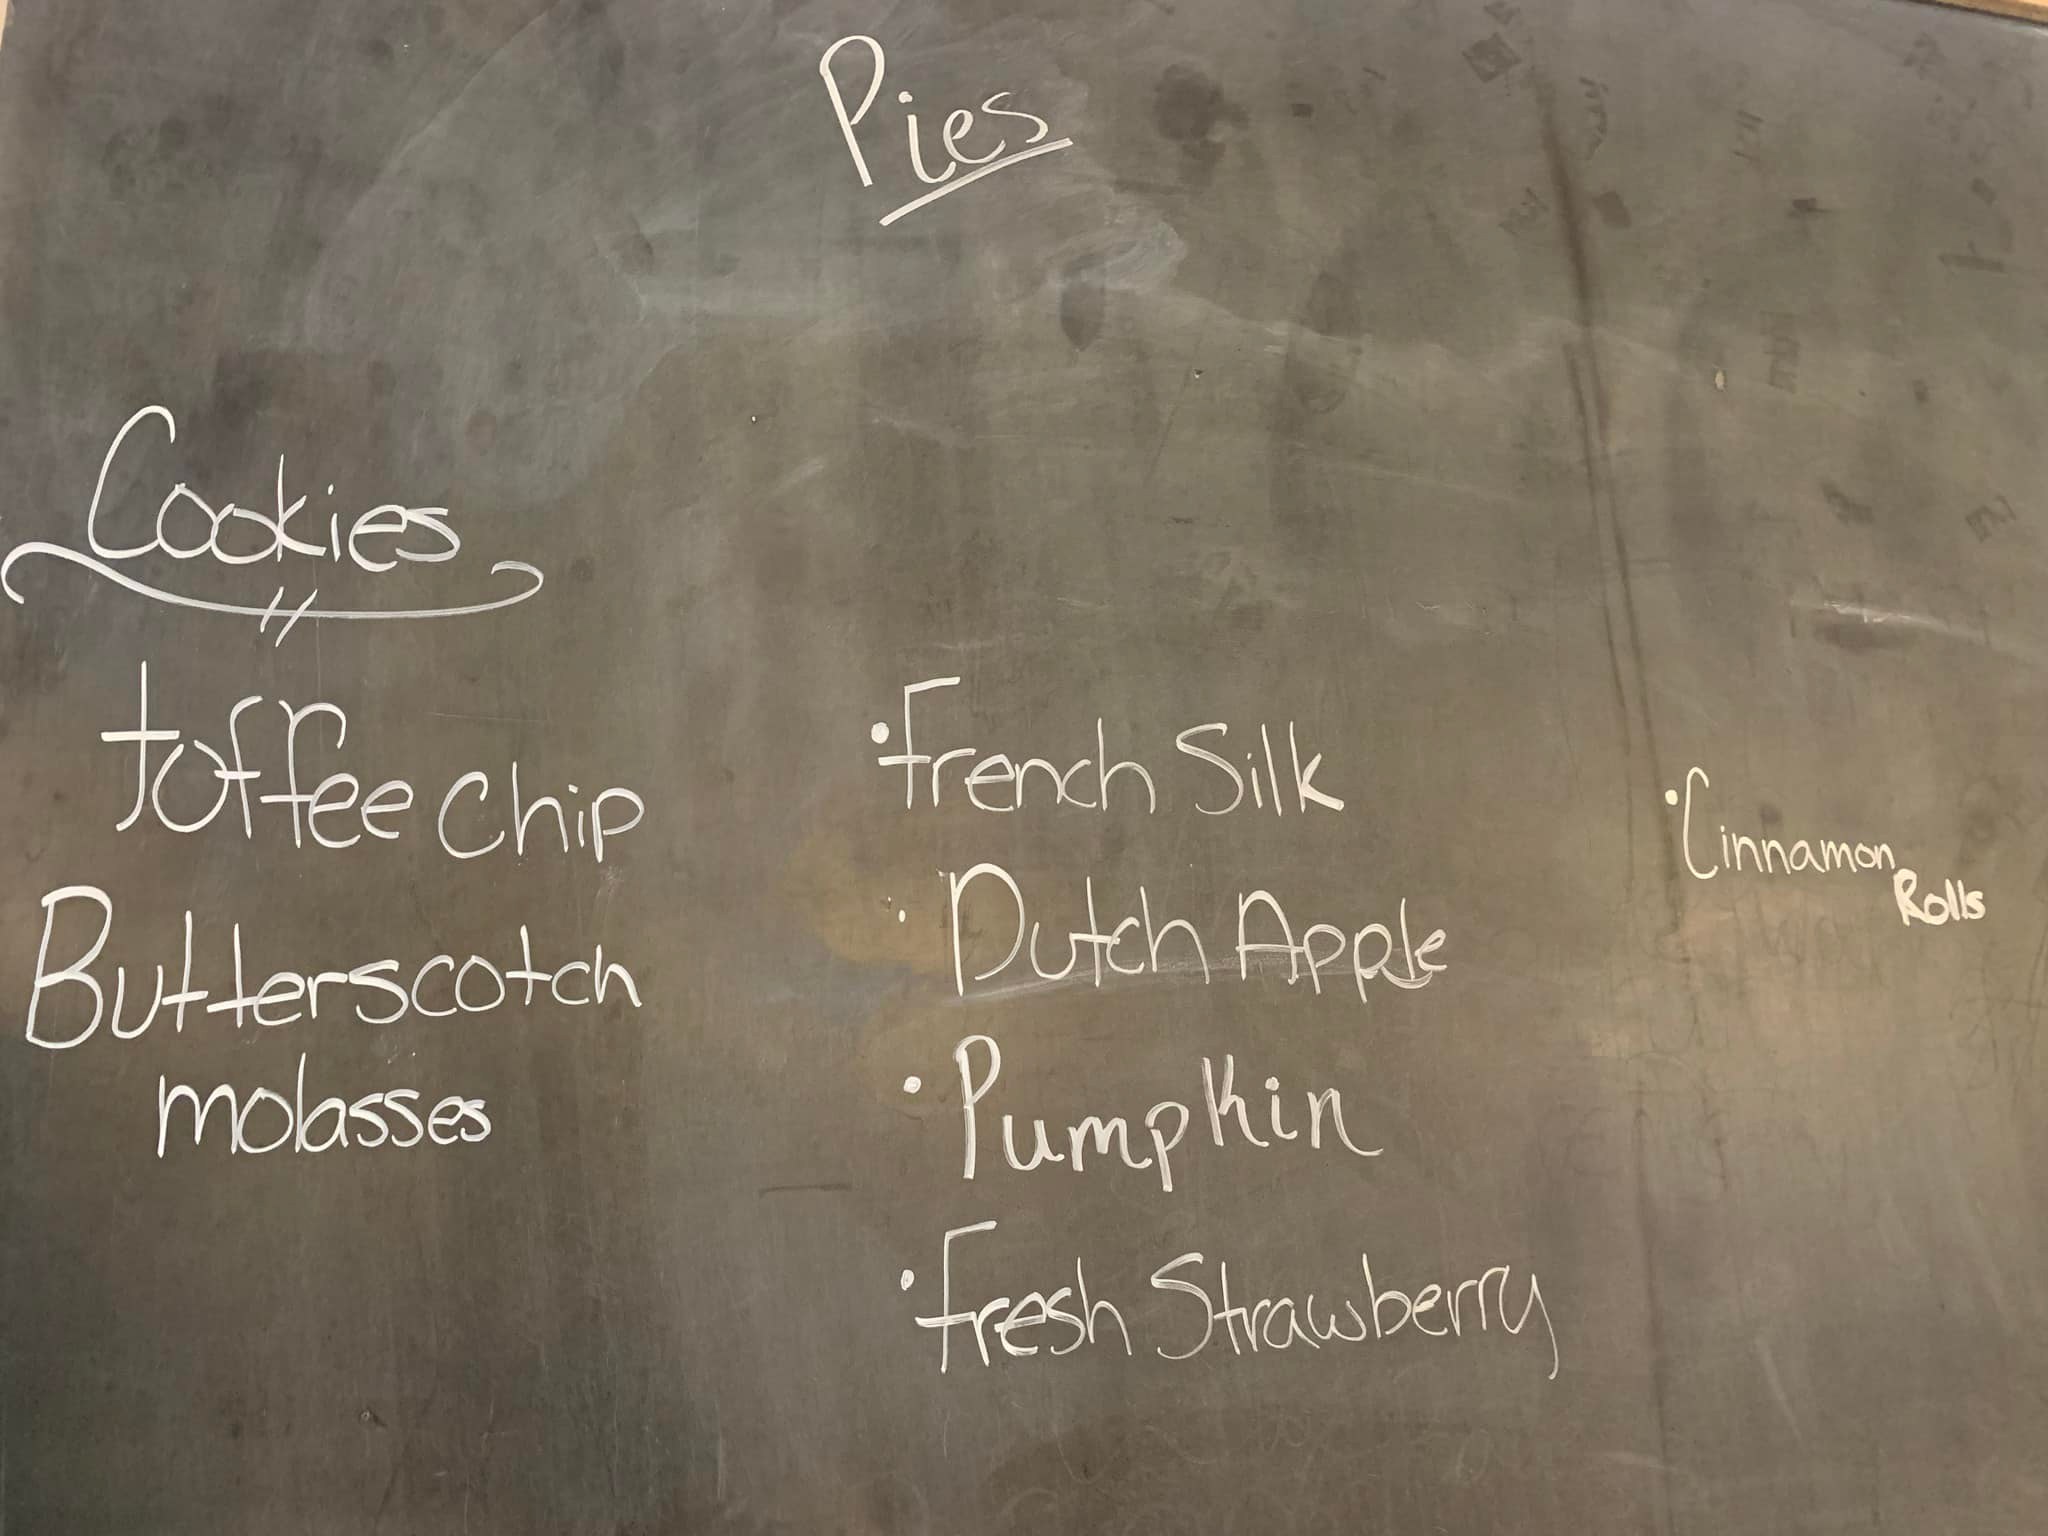 Pies
Cookies
toffee chip
Butterscotch
molasses
• French Silk
• Dutch Apple
• Pumpkin
• Fresh Strawberry
• Cinnamon
Rolls